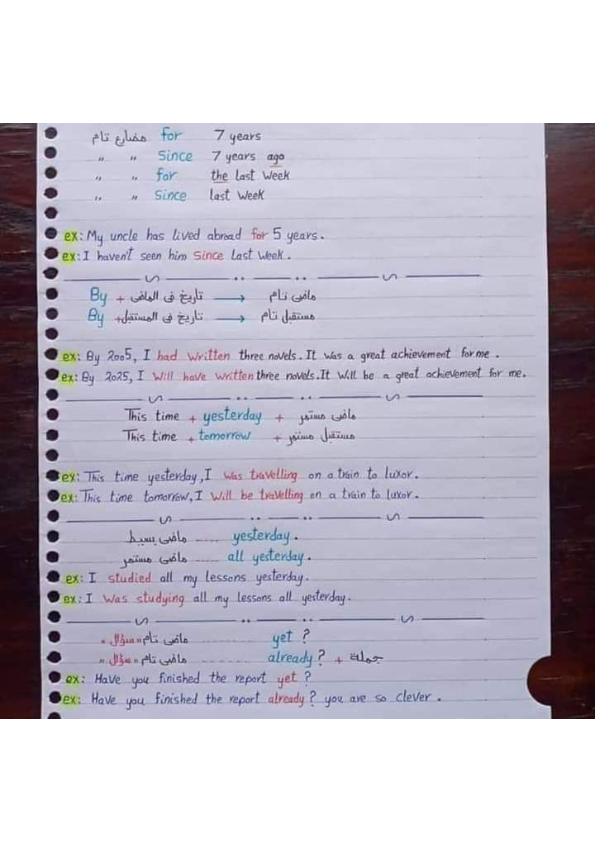 مضارع تام for 7 years
" " Since 7 years ago
" " for the last week
" " Since last week
ex: My uncle has lived abroad for 5 years.
ex: I haven't seen him Since last week.
By + تاريخ فى الماضى → ماضى تام
By + تاريخ فى المستقبل → مستقبل تام
ex: By 2005, I had written three novels. It was a great achievement for me.
ex: By 2025, I will have written three novels. It will be a great achievement for me.
This time + yesterday + ماضى مستمر
This time + tomorrow + مستقبل مستمر
ex: This time yesterday, I was travelling on a train to luxor.
ex: This time tomorrow, I will be travelling on a train to luxor.
ماضى بسيط ...... yesterday.
ماضى مستمر ...... all yesterday.
ex: I studied all my lessons yesterday.
ex: I was studying all my lessons all yesterday.
ماضى تام "سؤال" ............ yet ?
ماضى تام "سؤال" ............ already ? + جملة
ex: Have you finished the report yet ?
ex: Have you finished the report already ? you are so clever.